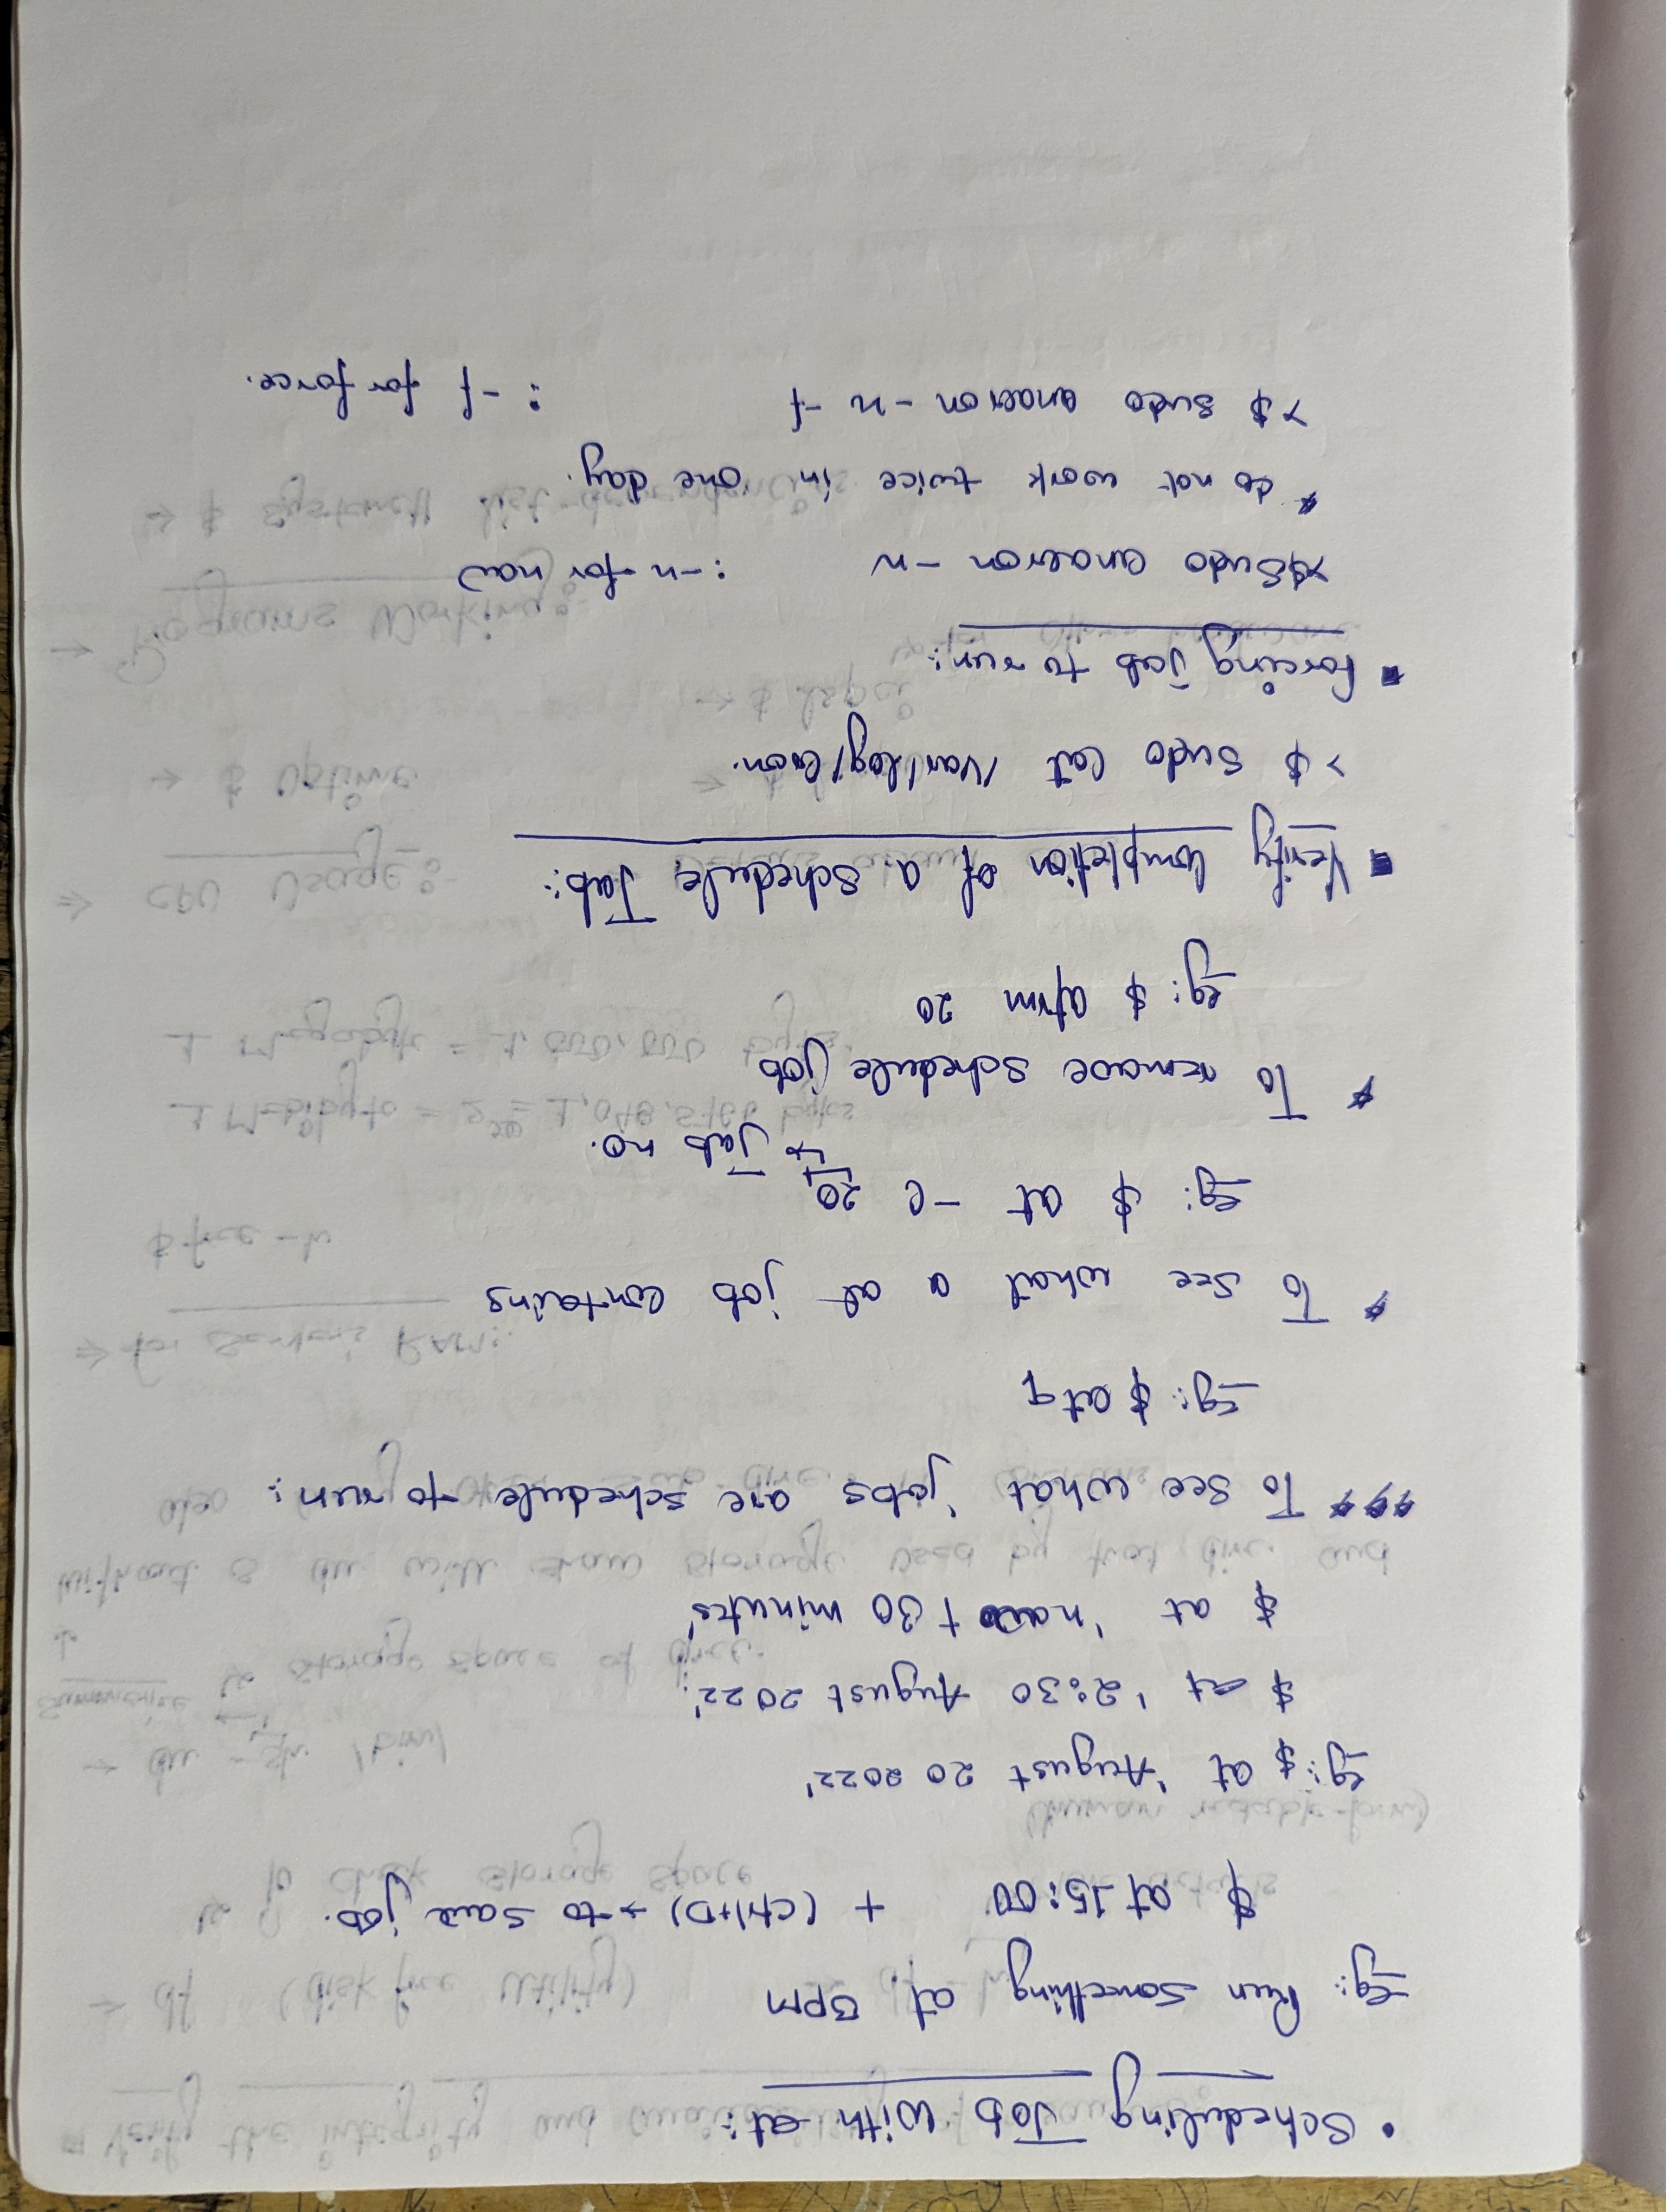 • Scheduling Job with at:
Eg: Run something at 3PM
$ at 15:00 + (Ctrl+D) → to save job.
Eg: $ at 'August 20 2022'
$ at '2:30 August 2022'
$ at 'now + 30 minutes'
*** To see what jobs are schedule to run:
Eg: $ atq
* To see what a at job contains
Eg: $ at -c 20
↳ Job no.
* To remove schedule job
Eg: $ atrm 20
▪ Verify Completion of a Schedule Job:
> $ sudo cat /var/log/cron.
▪ Forcing job to run:
>$ sudo anacron -n :-n for now
* do not work twice in one day.
>$ sudo anacron -n -f : -f for force.